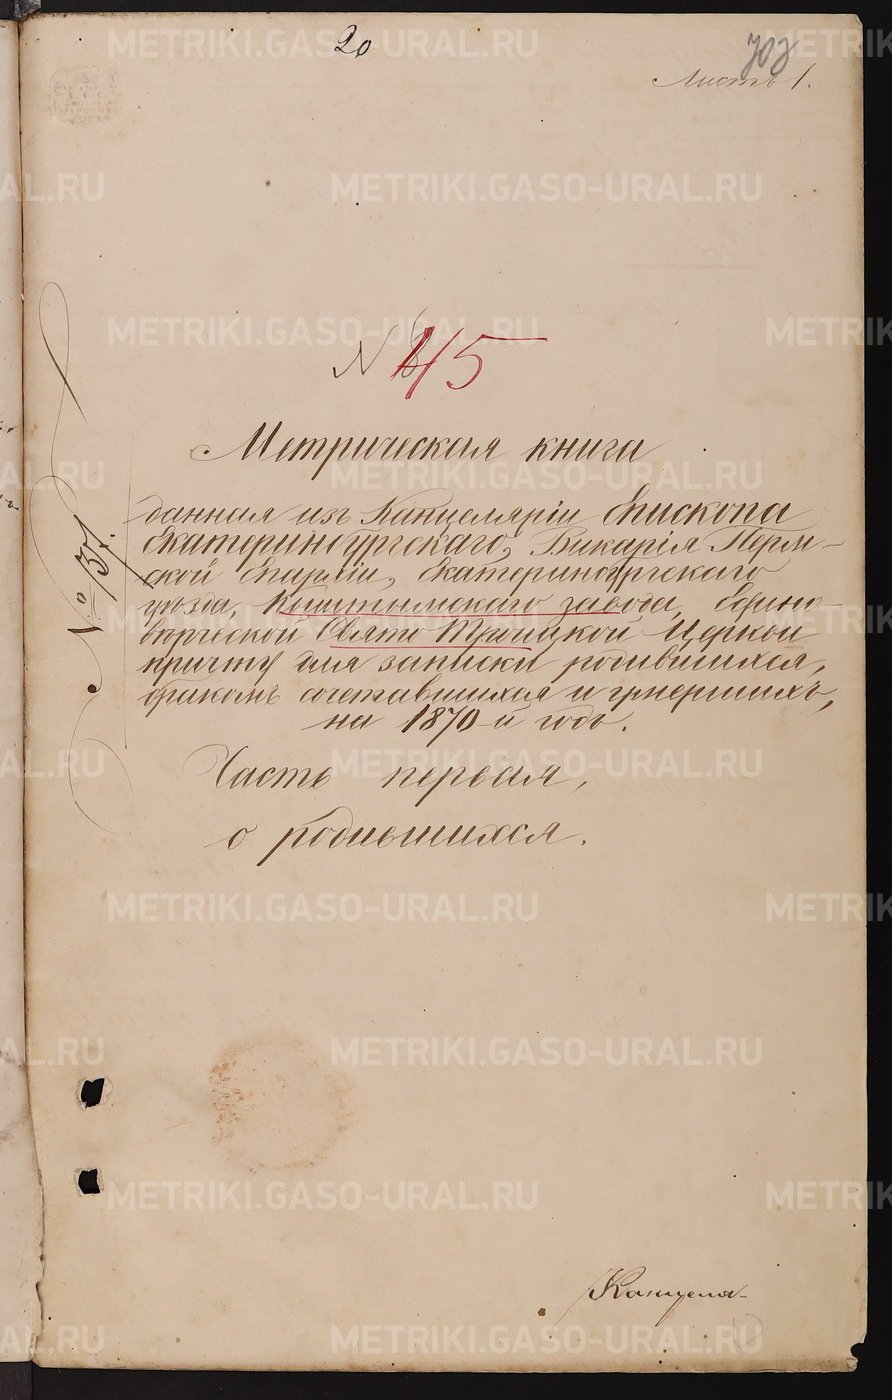 20
703
Листъ 1.
№ 45
№ 157.
Метрическая книга
данная изъ Канцеляріи Епископа
Екатеринбургскаго, Викарія Перм-
ской Епархіи, Екатеринбургскаго
уѣзда, Кыштымскаго завода, Едино-
вѣрческой Свято Троицкой Церкви
причту для записки родившихся,
бракомъ сочетавшихся и умершихъ,
на 1870-й годъ.
Часть первая,
о родившихся.
Канцеля-
METRIKI.GASO-URAL.RU